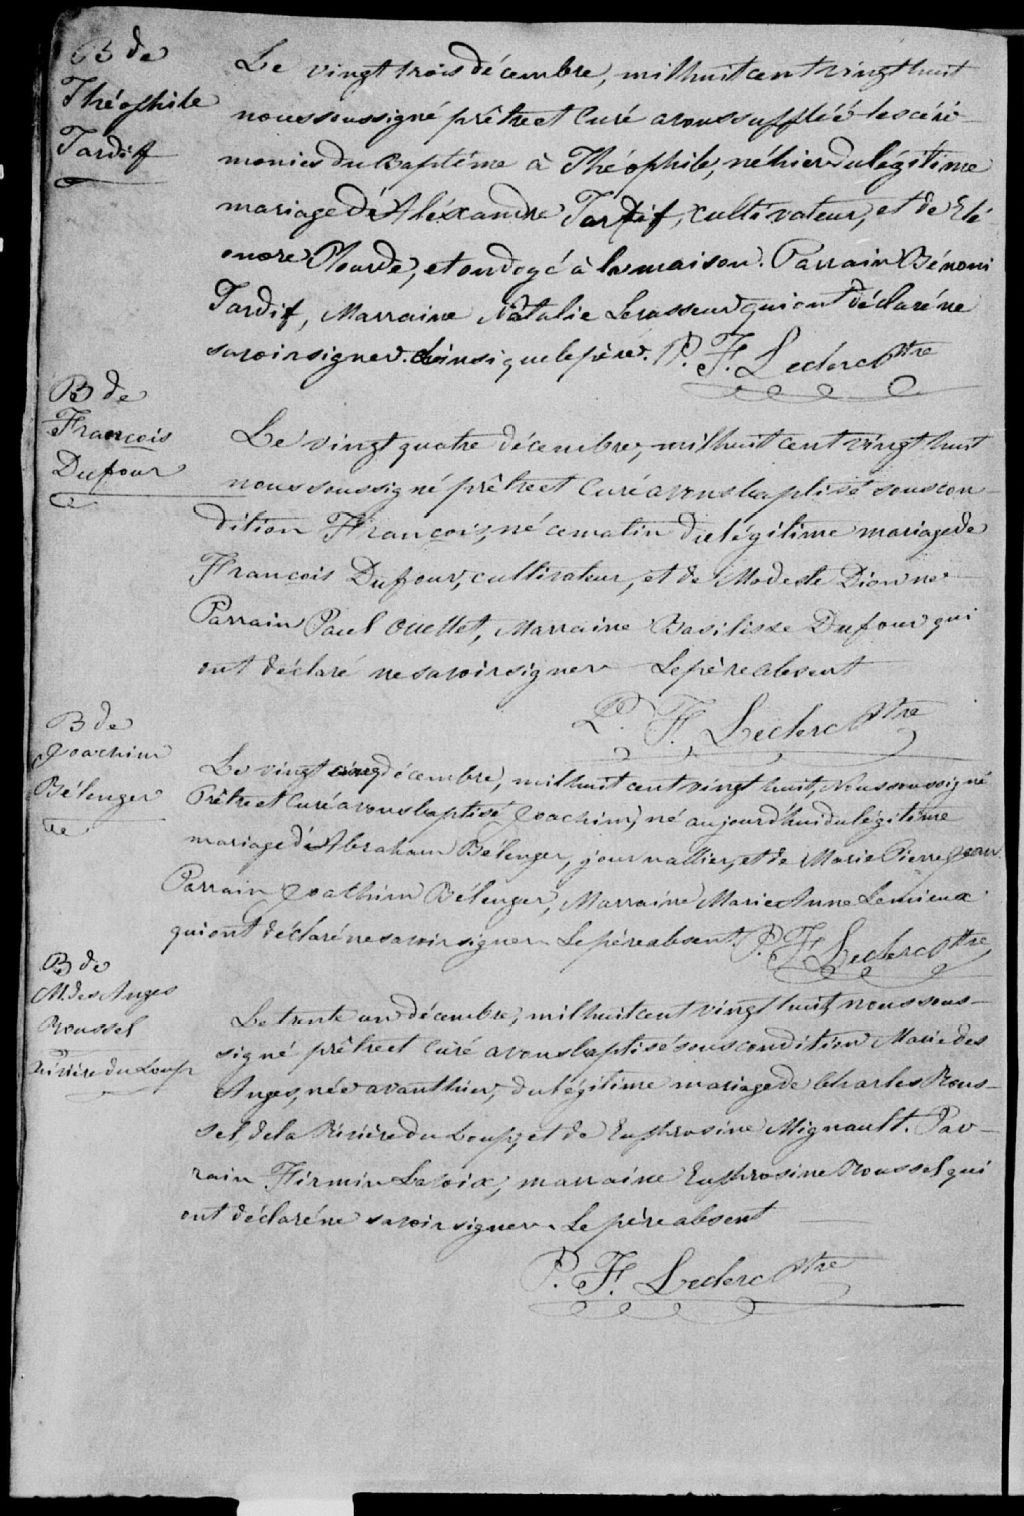 B de
Théophile
Tardif
Le vingt trois décembre, mil huit cent vingt huit
nous soussigné prêtre et Curé avons suppléé les céré-
monies du Baptême à Théophile, né hier du légitime
mariage d'Aléxandre Tardif, cultivateur, et de Elé-
onore Plourde, et ondoyé à la maison. Parrain Bénoni
Tardif, Marraine Natalie Levasseur qui ont déclaré ne
savoir signer. Ainsi que le père. P. F. Leclerc Ptre
B de
François
Dufour
Le vingt quatre décembre, mil huit cent vingt huit
nous soussigné prêtre et Curé avons baptisé sous con-
dition François, né ce matin du légitime mariage de
François Dufour, cultivateur, et de Modeste Dionne
Parrain Paul Ouellet, Marraine Basilisse Dufour qui
ont déclaré ne savoir signer Le père absent
P. F. Leclerc Ptre
B de
Joachim
Bélenger
Le vingt cinq décembre, mil huit cent vingt huit, Nous soussigné
Prêtre et Curé avons baptisé Joachim, né aujourd'hui du légitime
mariage d'Abraham Bélenger, journallier, et de Marie Pierre Jean
Parrain Joachim Bélenger, Marraine Marie Anne Lemieux
qui ont déclaré ne savoir signer Le père absent. P. F. Leclerc Ptre
B de
M. des Anges
Roussel
Rivière du Loup
Le trente un décembre, mil huit cent vingt huit, nous sous-
signé prêtre et Curé avons baptisé sous condition Marie des
Anges, née avant hier, du légitime mariage de Charles Rous-
sel, de la Rivière du Loup, et de Euphrosine Mignault. Par-
rain Firmin Lavoix, marraine Euphrosine Roussel qui
ont déclaré ne savoir signer Le père absent
P. F. Leclerc Ptre